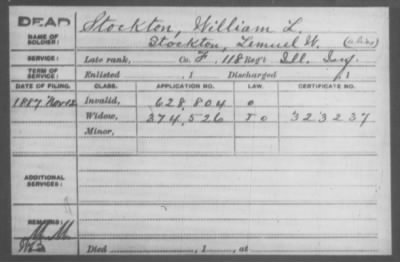 DEAD
Stockton, William L.
NAME OF SOLDIER:
Stockton, Lemuel W. (alias)
SERVICE:
Late rank, Co. F, 118 Reg't Ill. Inf.
TERM OF SERVICE:
Enlisted , 1 Discharged , 1
DATE OF FILING. CLASS. APPLICATION NO. LAW. CERTIFICATE NO.
1887 Nov 12 Invalid, 628,804 o
Widow, 374,526 323237
Minor,
ADDITIONAL SERVICES:
REMARKS:
Died , 1 , at